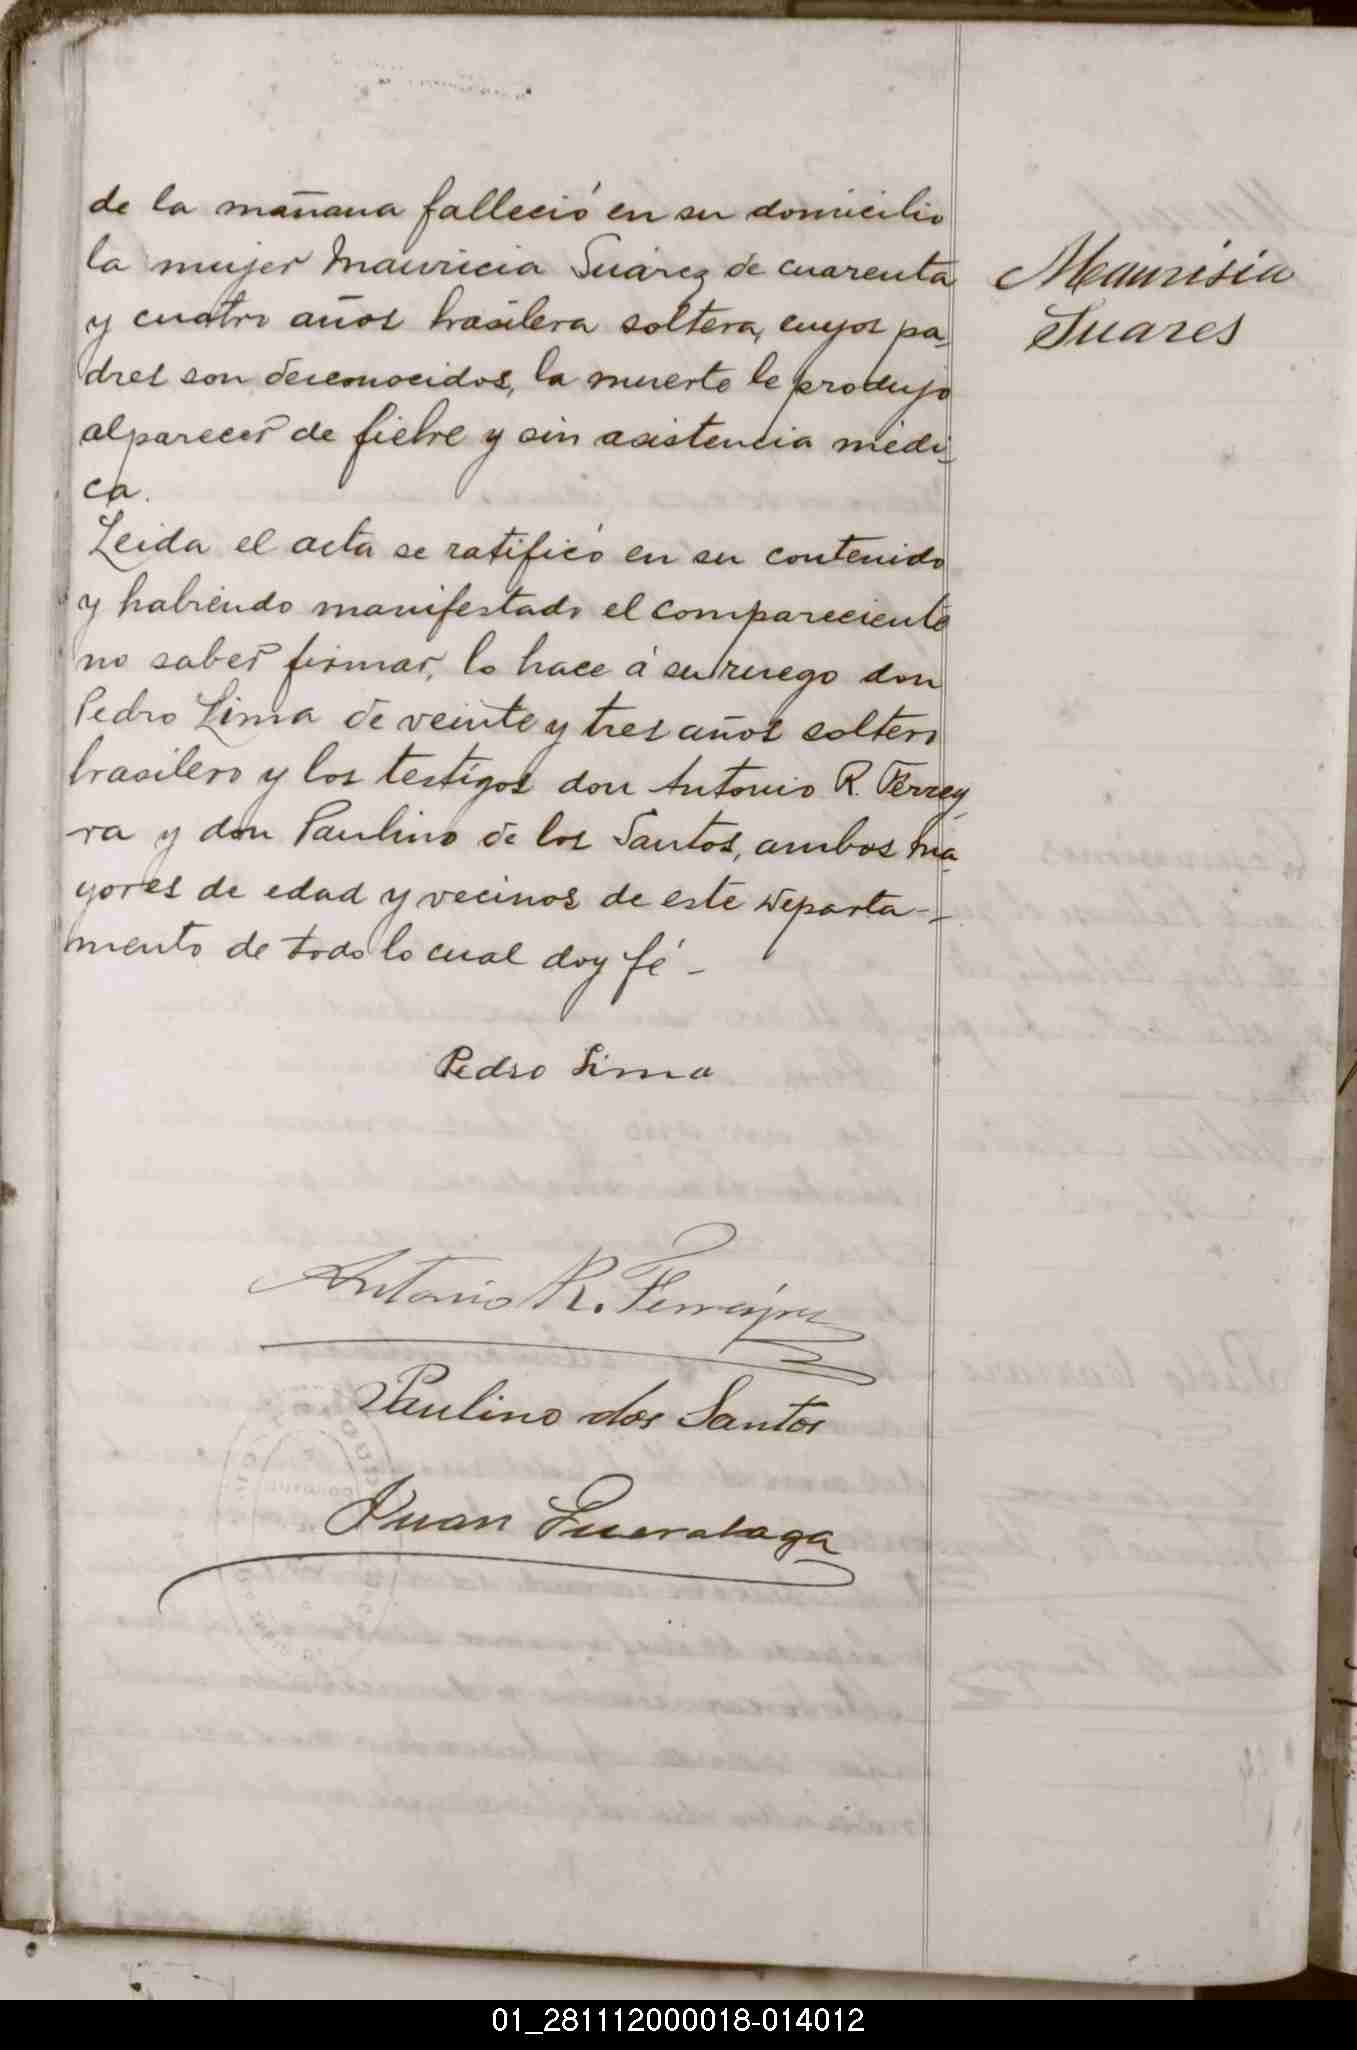 de la mañana falleció en su domicilio
la mujer Mauricia Suárez de cuarenta
y cuatro años brasilera soltera, cuyos pa-
dres son desconocidos, la muerte le produjo
al parecer de fiebre y sin asistencia médi-
ca.
Leida el acta se ratificó en su contenido
y habiendo manifestado el compareciente
no saber firmar, lo hace á su ruego don
Pedro Lima de veinte y tres años soltero
brasilero y los testigos don Antonio R. Ferrey-
ra y don Paulino de los Santos, ambos ma-
yores de edad y vecinos de este Departa-
mento de todo lo cual doy fé -
Maurisia
Suares
Pedro Lima
Antonio R. Ferreyra
Paulino dos Santos
Juan
01_281112000018-014012